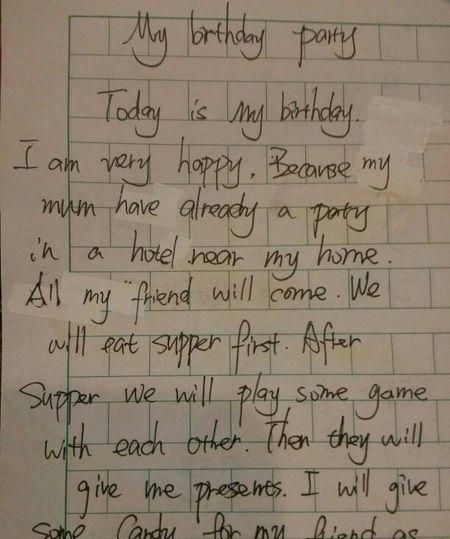 My birthday party
Today is my birthday.
I am very happy. Because my
mum have already a party
in a hotel near my home.
All my friend will come. We
will eat supper first. After
supper we will play some game
with each other. Then they will
give me presents. I will give
some candy for my friend as